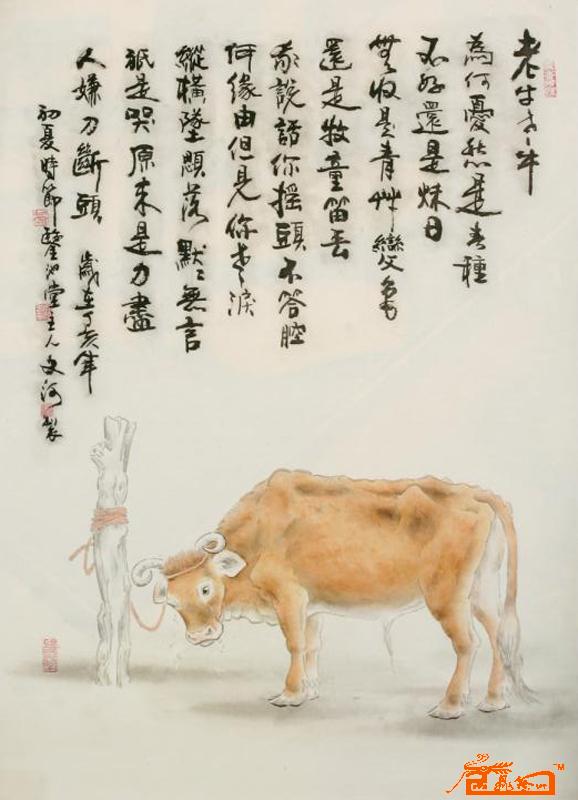 老牛老牛
為何憂愁是春種
不好還是秋日
無收是青艸變色
還是牧童笛丟
我說話你搖頭不答腔
何緣由但見你老淚
縱橫墜顋落默々無言
祇是哭原来是力盡
人嫌刀斷頭 歲在丁亥年
初夏時節堂主人文河製